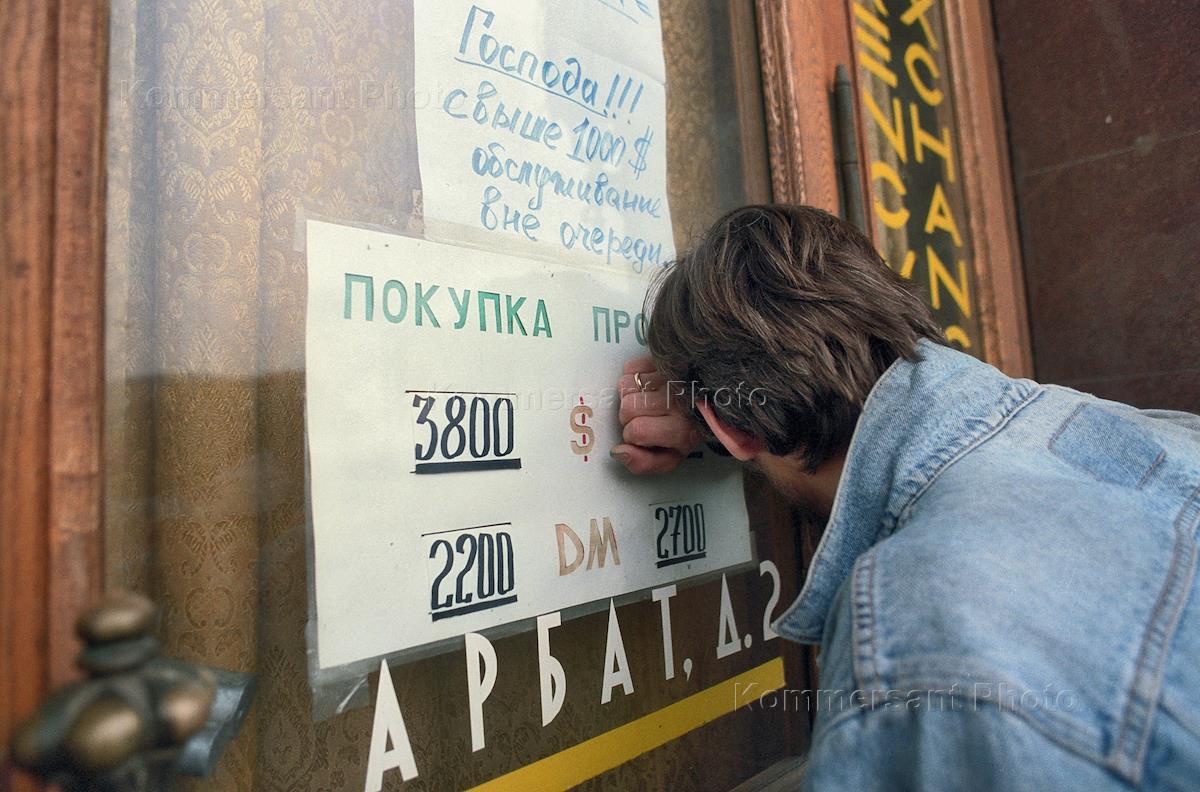 Господа!!!
свыше 1000 $
обслуживание
вне очереди.
ПОКУПКА ПРО
3800 $
2200 DM 2700
АРБАТ, Д. 2
ENCY
XCHANG
Kommersant Photo
Kommersant Photo
Kommersant Photo
Kommersant Photo